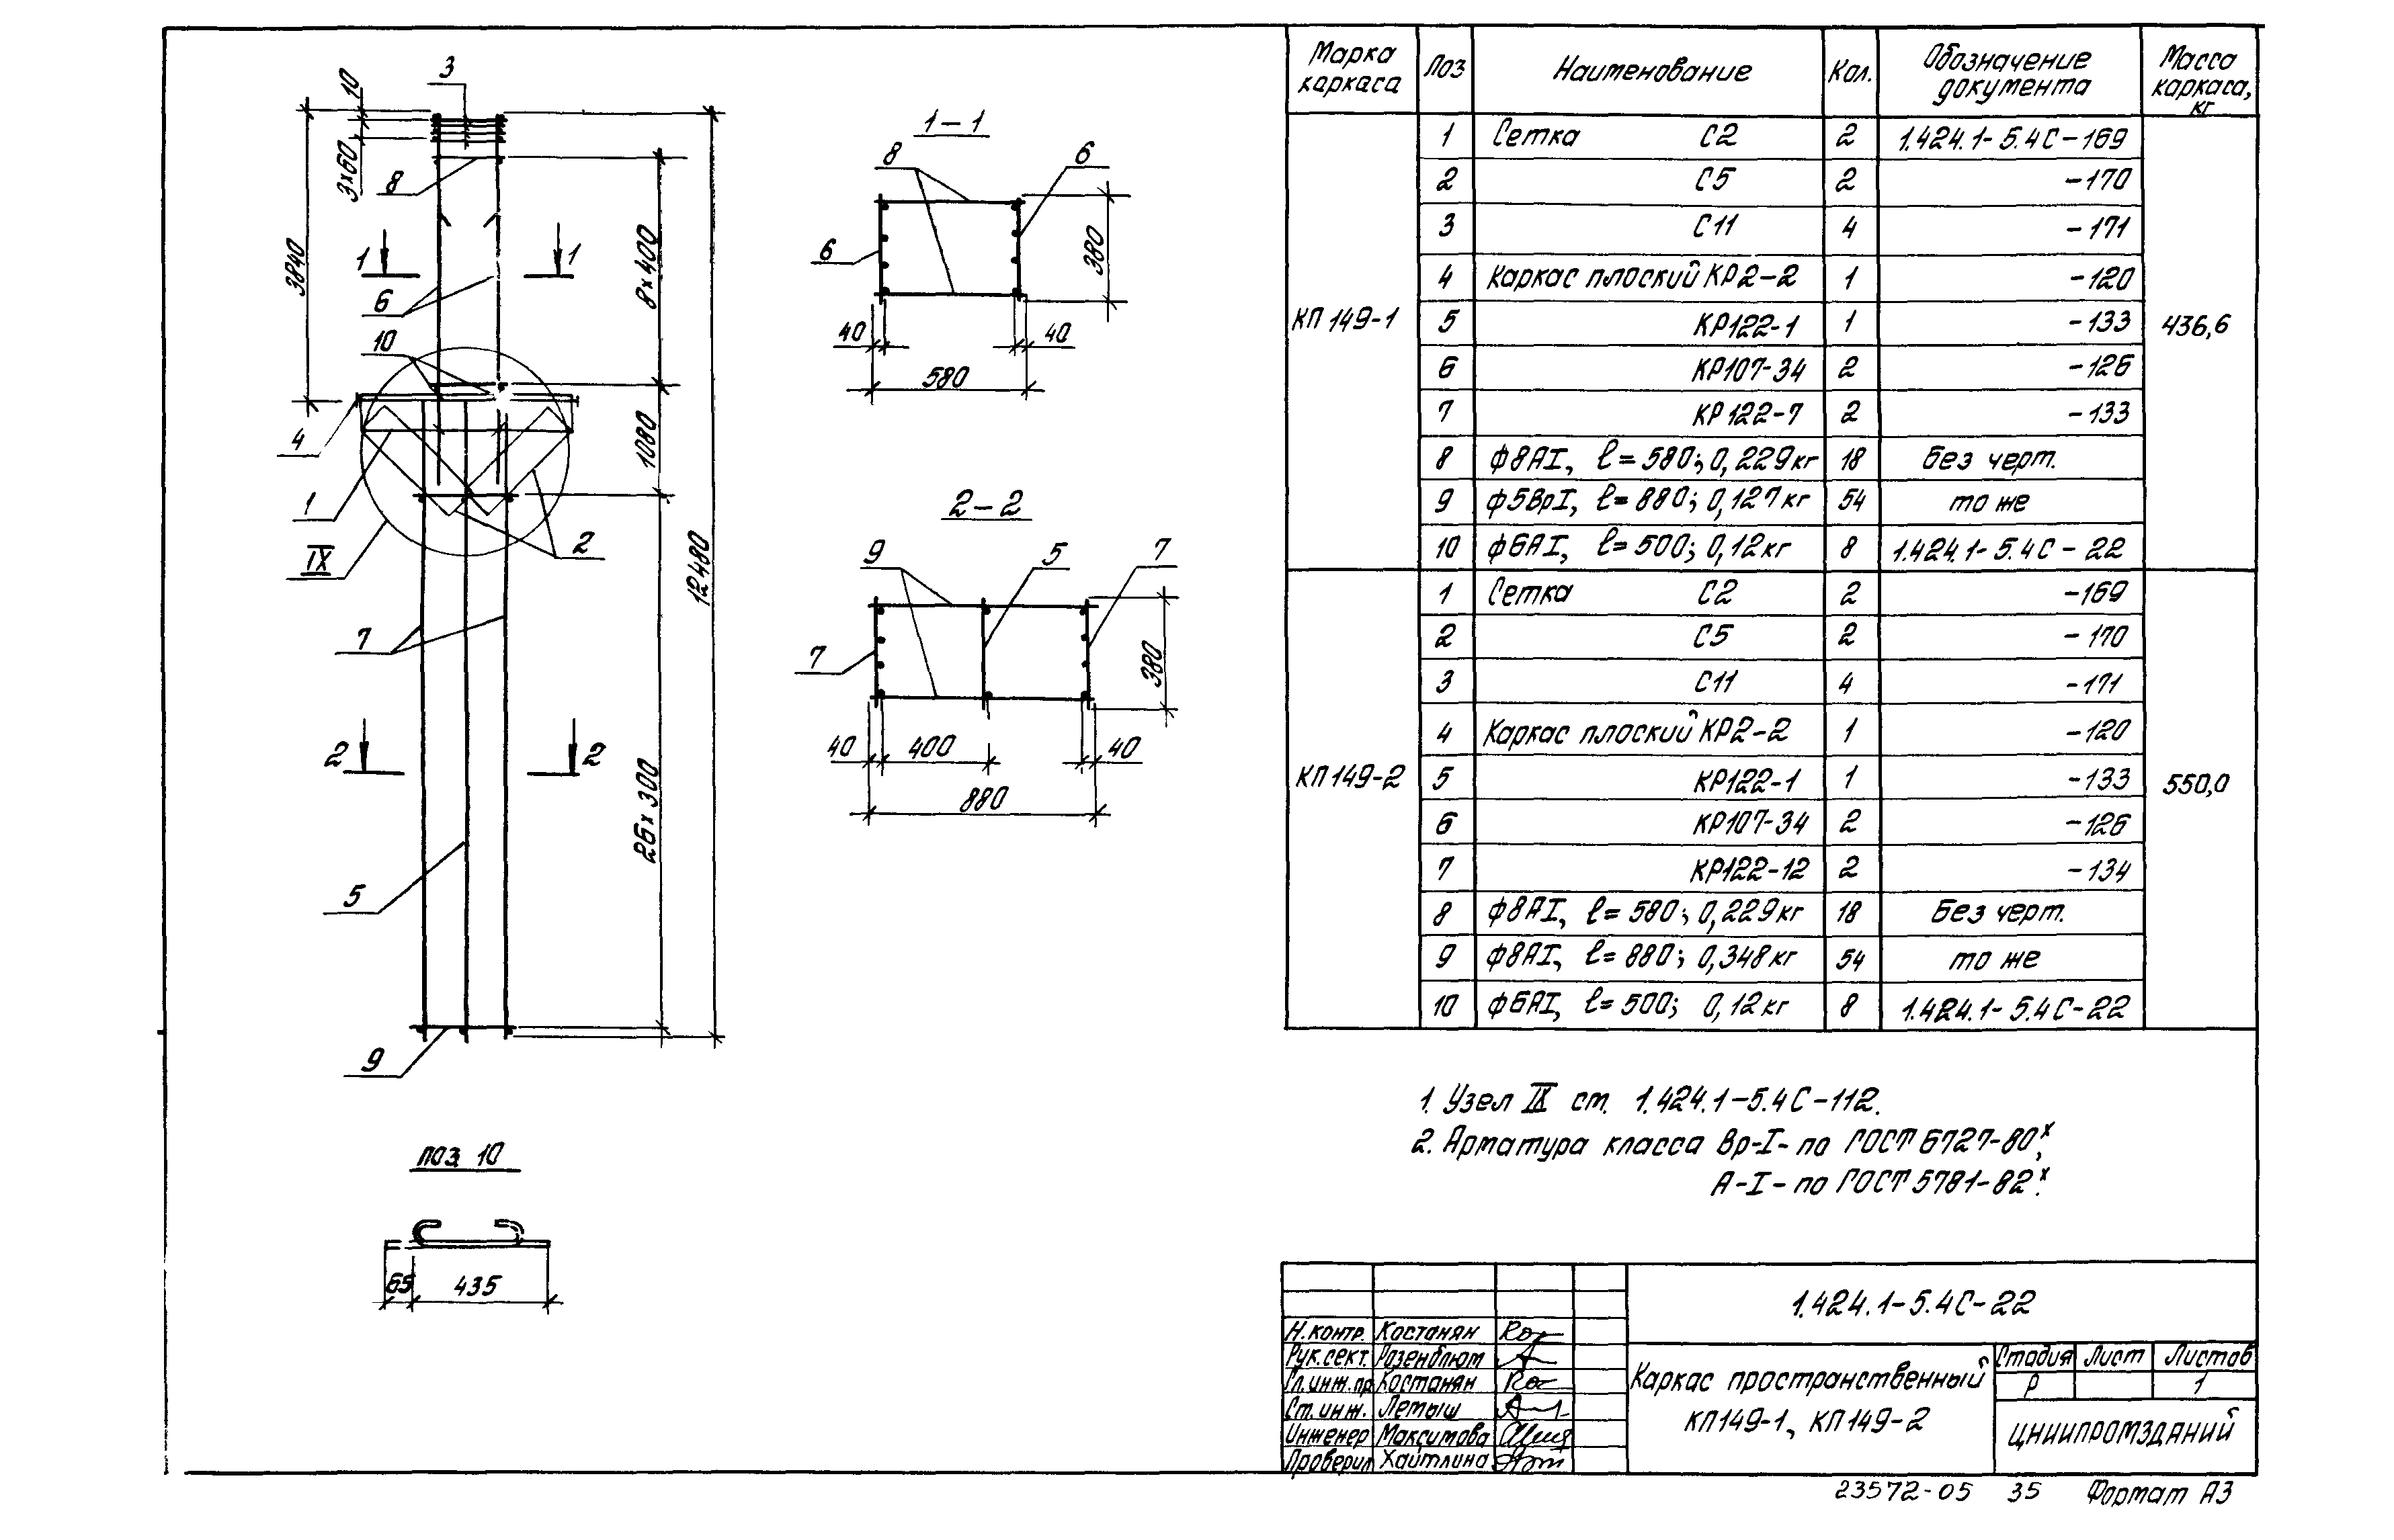 Марка каркаса | Поз | Наименование | Кол. | Обозначение документа | Масса каркаса, кг
КП149-1 | 436,6
1 | Сетка С2 | 2 | 1.424.1-5.4С-169
2 | С5 | 2 | -170
3 | С11 | 4 | -171
4 | Каркас плоский КР2-2 | 1 | -120
5 | КР122-1 | 1 | -133
6 | КР107-34 | 2 | -126
7 | КР122-7 | 2 | -133
8 | ф8АI, ℓ=580; 0,229кг | 18 | Без черт.
9 | ф5ВрI, ℓ=880; 0,127кг | 54 | то же
10 | ф6АI, ℓ=500; 0,12кг | 8 | 1.424.1-5.4С-22
КП149-2 | 550,0
1 | Сетка С2 | 2 | -169
2 | С5 | 2 | -170
3 | С11 | 4 | -171
4 | Каркас плоский КР2-2 | 1 | -120
5 | КР122-1 | 1 | -133
6 | КР107-34 | 2 | -126
7 | КР122-12 | 2 | -134
8 | ф8АI, ℓ=580; 0,229кг | 18 | Без черт.
9 | ф8АI, ℓ=880; 0,348кг | 54 | то же
10 | ф6АI, ℓ=500; 0,12кг | 8 | 1.424.1-5.4С-22
3
10
3×60
8
3840
1 1
6
8×400
10
4
1080
1
IX
2
12480
7
2 2
26×300
5
9
1-1
8
6
6
380
40 40
580
2-2
9
5
7
7
380
40 400 40
880
поз. 10
65 435
1. Узел IX см. 1.424.1-5.4С-112.
2. Арматура класса Вр-I- по ГОСТ 6727-80ˣ,
А-I- по ГОСТ 5781-82ˣ.
1.424.1-5.4С-22
Н.контр. Костанян
Рук.сект. Розенблюм
Гл.инж.пр Костанян
Ст.инж. Летыш
Инженер Максимова
Проверил Хайтлина
Каркас пространственный
КП149-1, КП149-2
Стадия Лист Листов
Р 1
ЦНИИПРОМЗДАНИЙ
23572-05 35 Формат А3